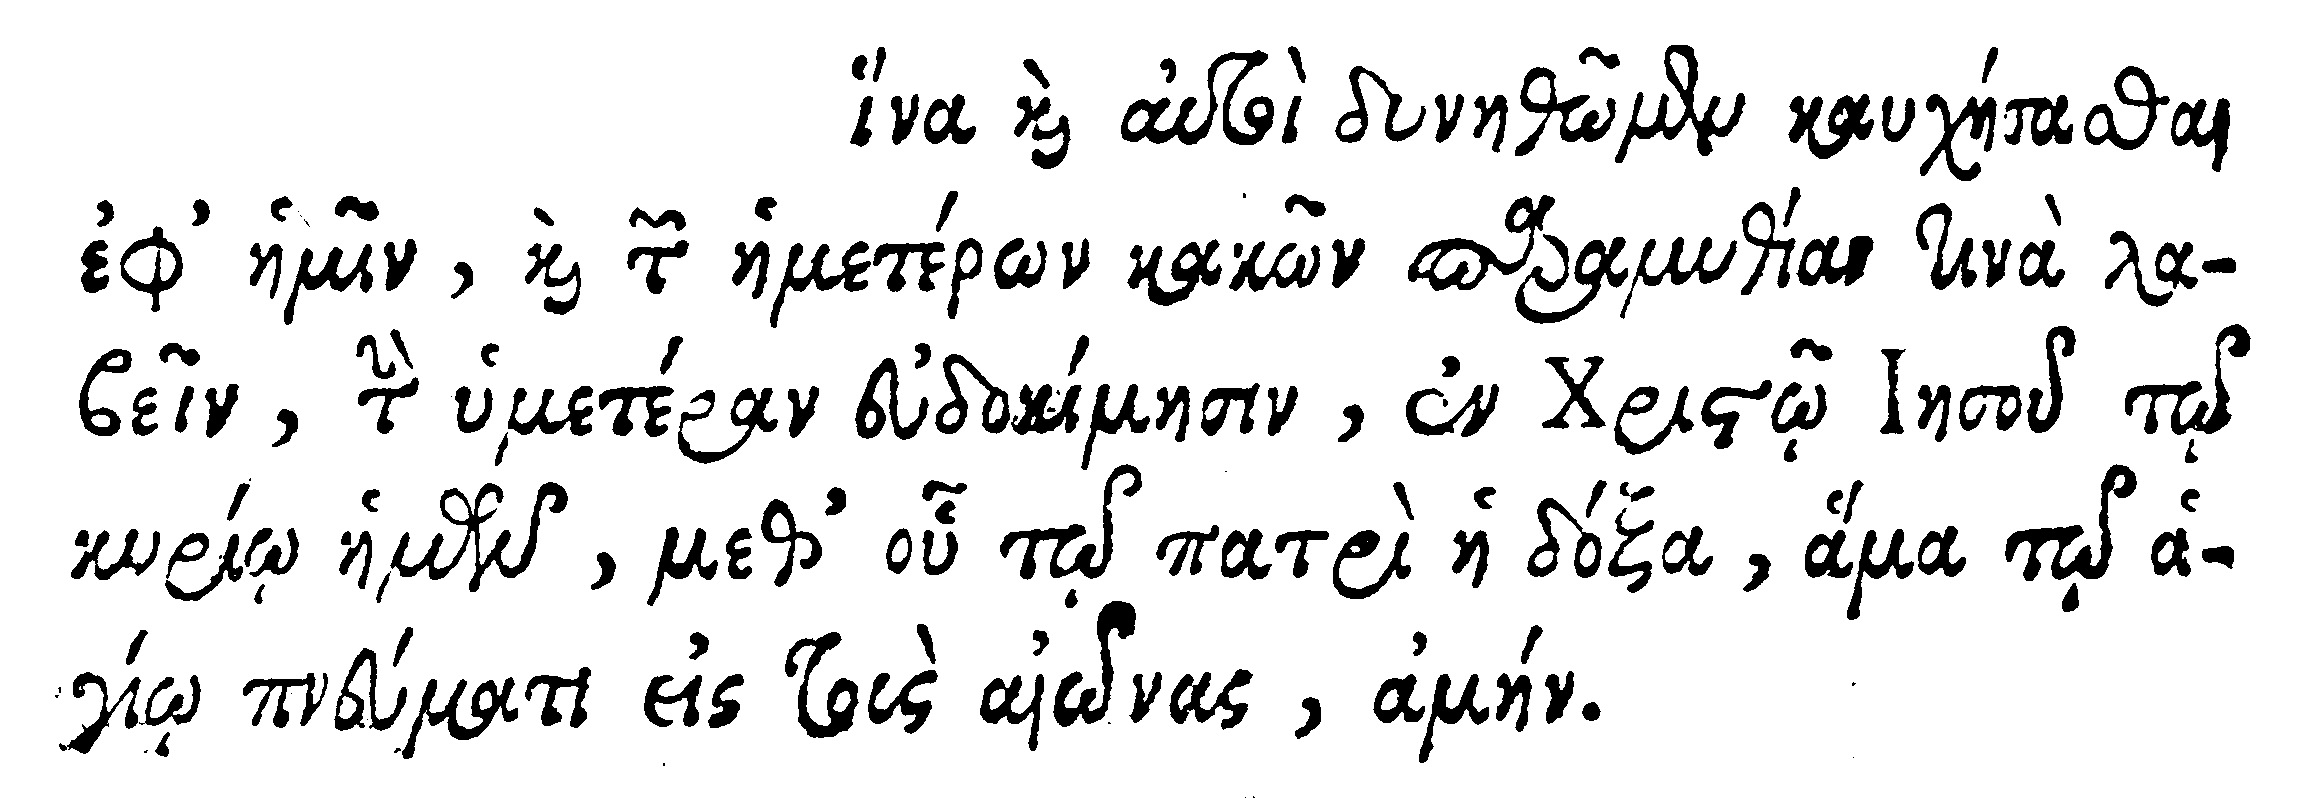 ἵνα ϗ̀ αὐτοὶ δυνηθῶμεν καυχήσασθαι
ἐφ' ἡμῖν, ϗ̀ τῶν ἡμετέρων κακῶν παραμυθίαν τινὰ λα-
βεῖν, τὴν ὑμετέραν εὐδοκίμησιν, ἐν Χριστῷ Ιησοῦ τῷ
κυρίῳ ἡμῶν, μεθ' οὗ τῷ πατρὶ ἡ δόξα, ἅμα τῷ ἁ-
γίῳ πνεύματι εἰς τοὺς αἰῶνας, ἀμήν.